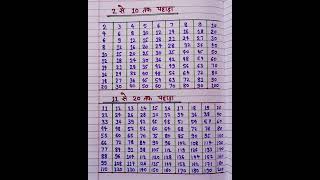 2 से 10 तक पहाड़ा
2 3 4 5 6 7 8 9 10
4 6 8 10 12 14 16 18 20
6 9 12 15 18 21 24 27 30
8 12 16 20 24 28 32 36 40
10 15 20 25 30 35 40 45 50
12 18 24 30 36 42 48 54 60
14 21 28 35 42 49 56 63 70
16 24 32 40 48 56 64 72 80
18 27 36 45 54 63 72 81 90
20 30 40 50 60 70 80 90 100
11 से 20 तक पहाड़ा
11 12 13 14 15 16 17 18 19 20
22 24 26 28 30 32 34 36 38 40
33 36 39 42 45 48 51 54 57 60
44 48 52 56 60 64 68 72 76 80
55 60 65 70 75 80 85 90 95 100
66 72 78 84 90 96 102 108 114 120
77 84 91 98 105 112 119 126 133 140
88 96 104 112 120 128 136 144 152 160
99 108 117 126 135 144 153 162 171 180
110 120 130 140 150 160 170 180 190 200